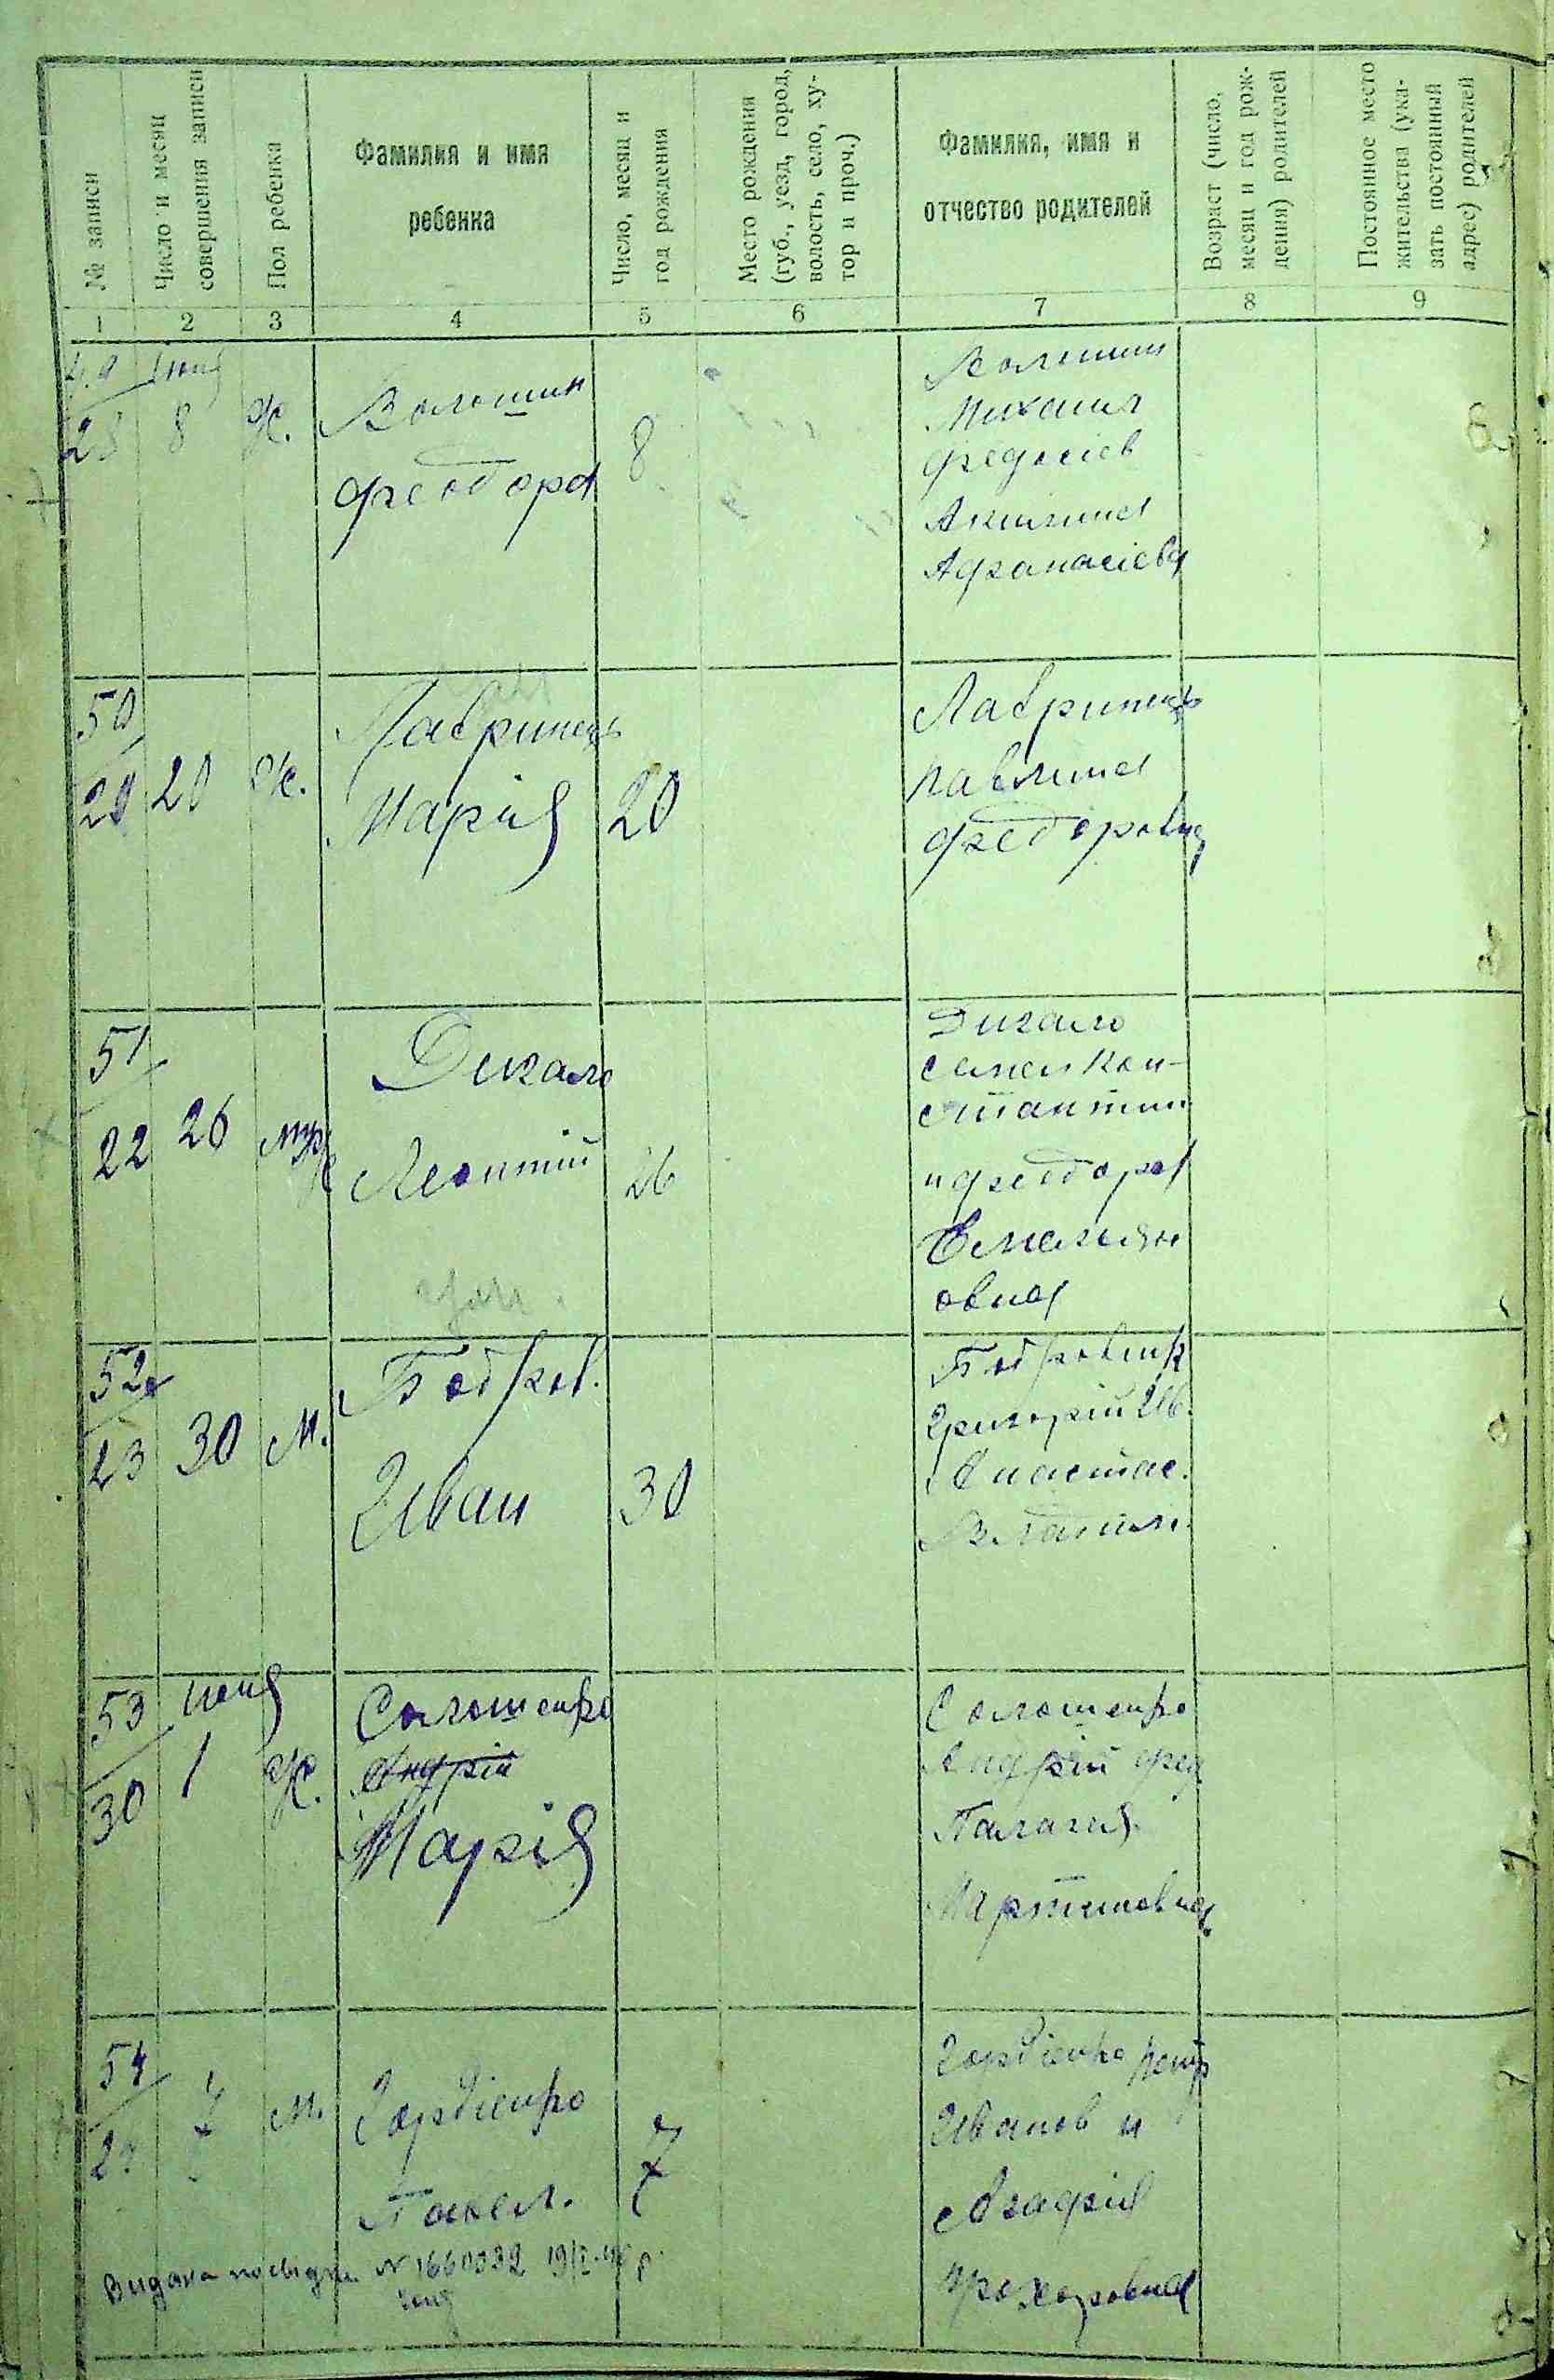 № записи
Число и месяц
совершения записи
Пол ребенка
Фамилия и имя
ребенка
Число, месяц и
год рождения
Место рождения
(губ., уезд, город,
волость, село, ху-
тор и проч.)
Фамилия, имя и
отчество родителей
Возраст (число,
месяц и год рож-
дения) родителей
Постоянное место
жительства (ука-
зать постоянный
адрес) родителей
1 2 3 4 5 6 7 8 9
49
28
8
Ж.
Волошин
Феодора
8
Волошин
Михаил
Федосіев
Акилина
Афанасіева
50
29
20
Ж.
Лавринець
Марія
20
Лавринець
Павлина
Федоровна
51
22
26
муж
Дикало
Леонтій
26
Дикало
Семен Кон-
стантин
и Федора
Емельян
овна
52
23
30
М.
Бобров.
Иван
30
Григорій Ив.
Анастас.
Владим.
53
30
1
Ж.
Солошенко
Андрій
Марія
Солошенко
Андрій Фед
Палагія
Мартиновна
54
7
М.
Гордіенко
Павел.
7
Гордіенко Петр
Иванов и
Агафія
Прохоровна
Видана посвідка N 1660032